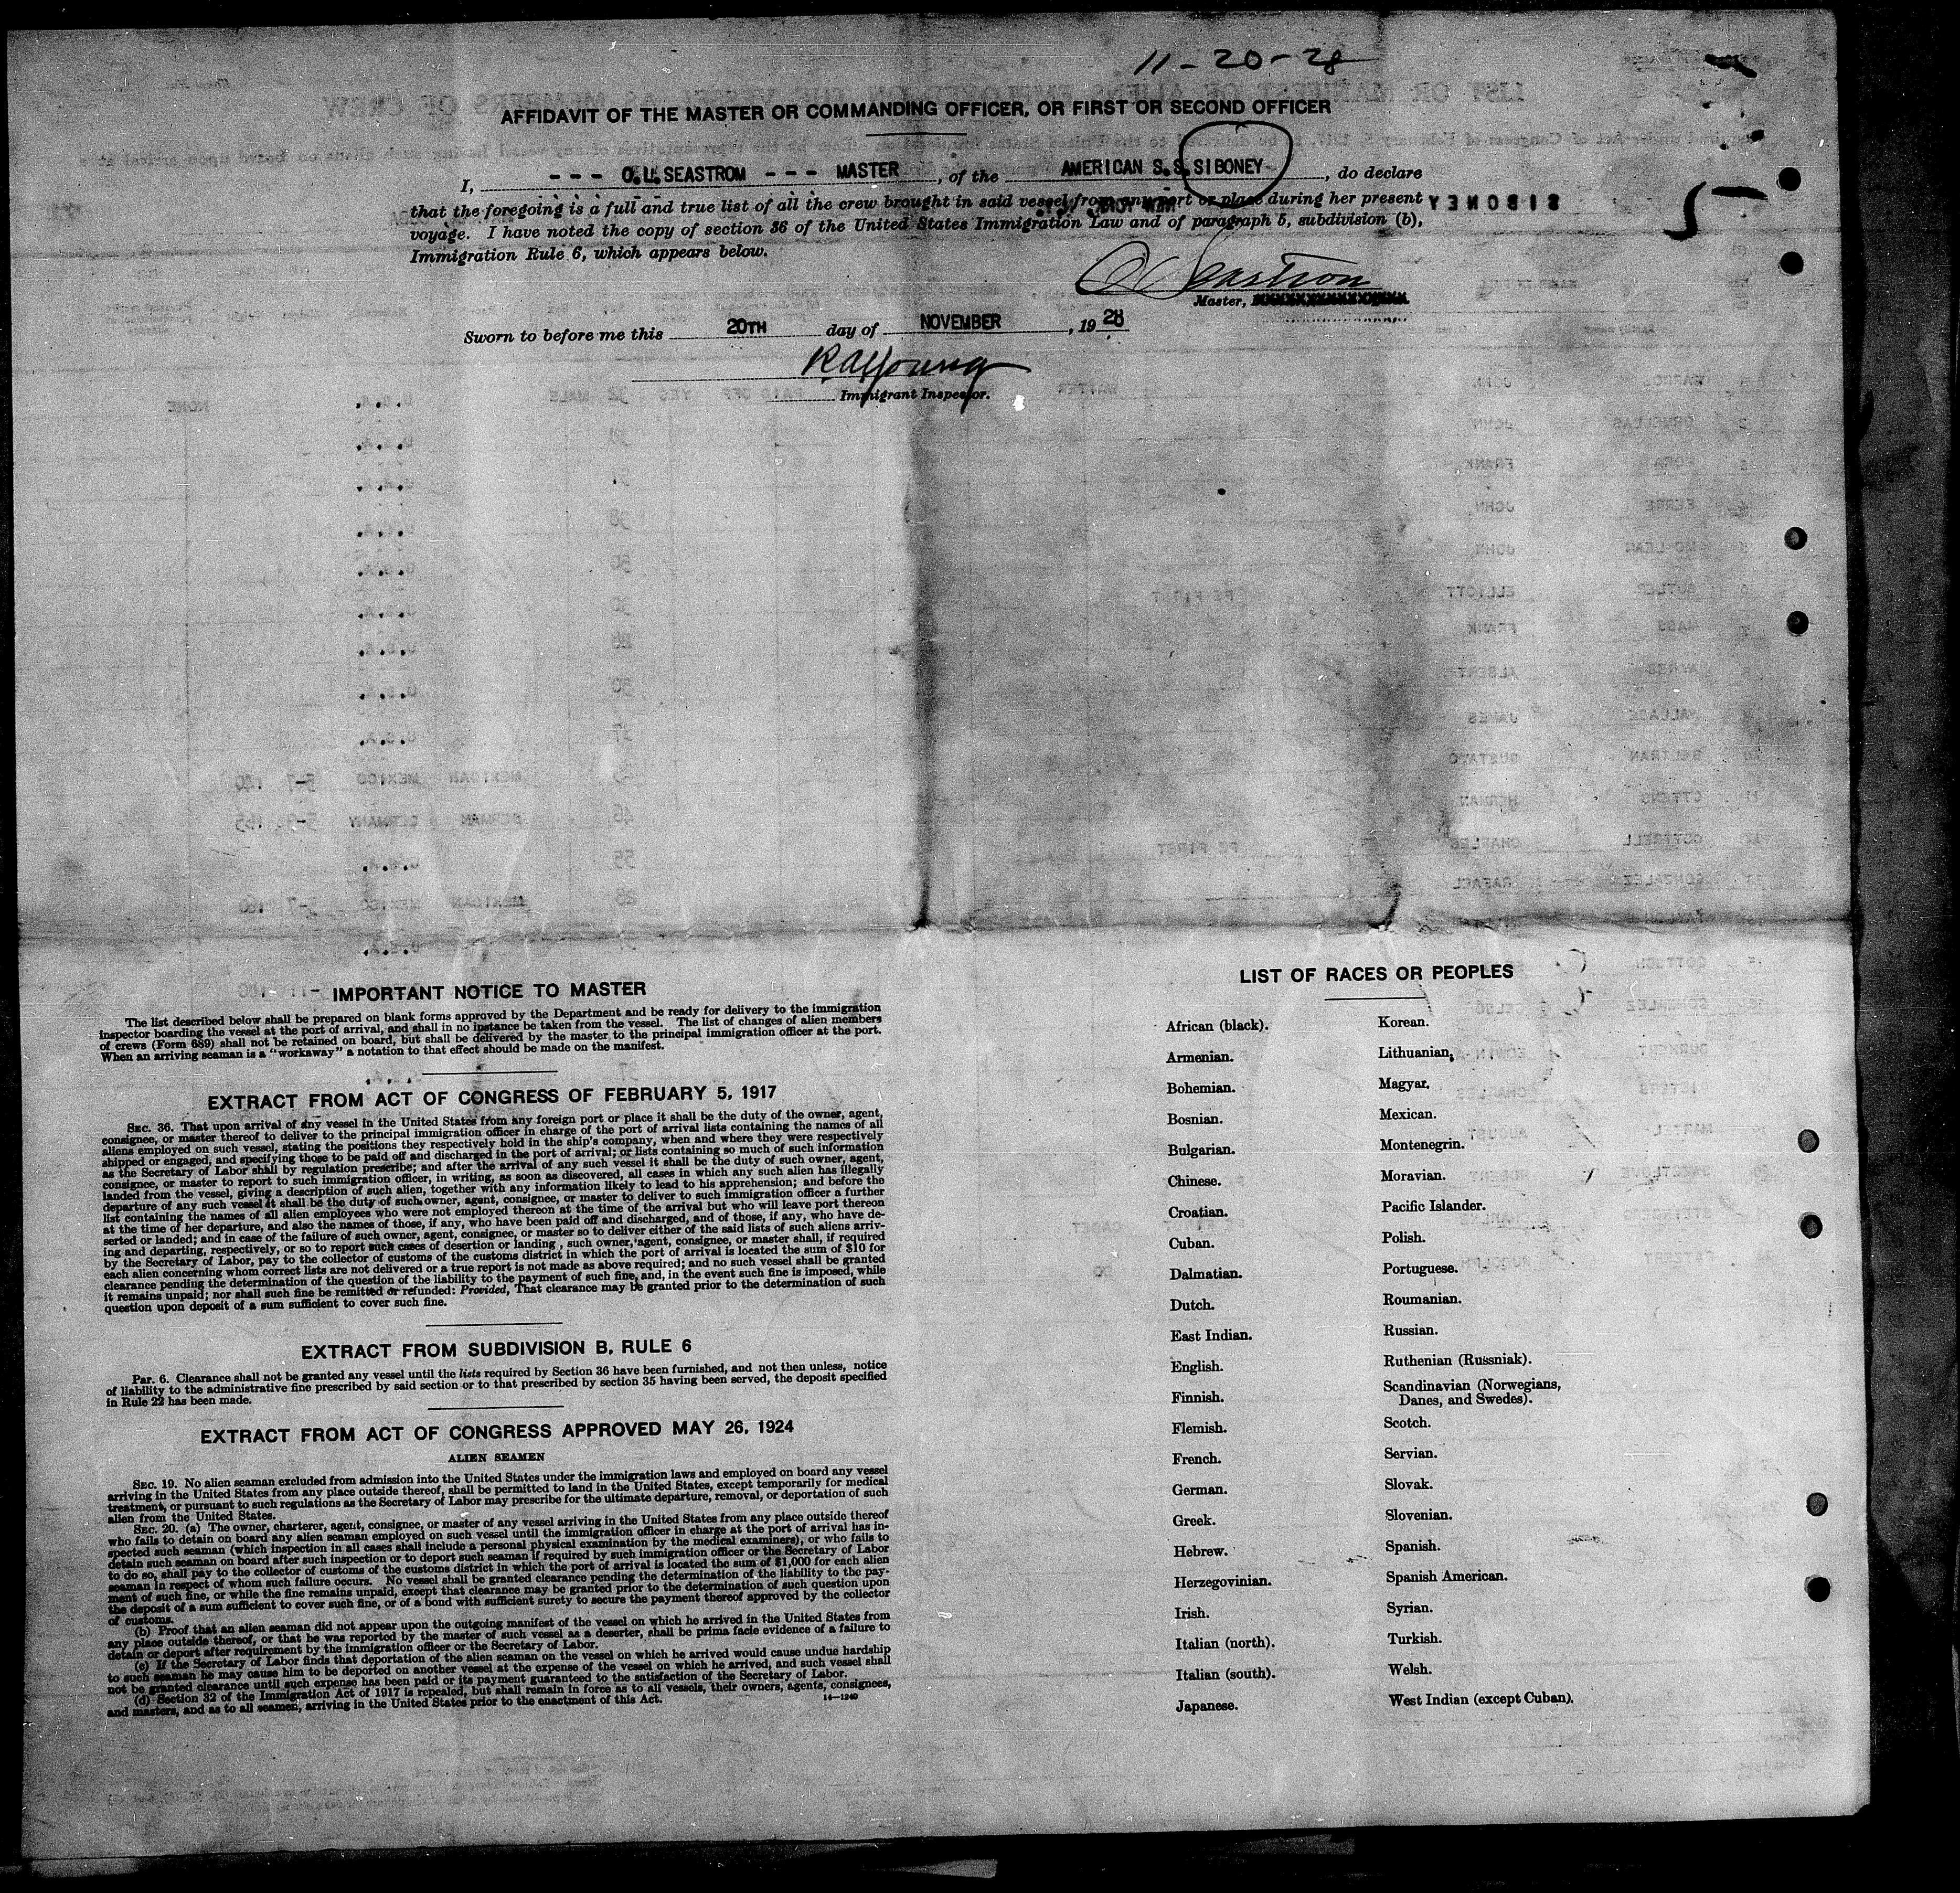 11-20-28
AFFIDAVIT OF THE MASTER OR COMMANDING OFFICER, OR FIRST OR SECOND OFFICER
I, --- O.U. SEASTROM --- MASTER, of the AMERICAN S.S. SIBONEY, do declare
that the foregoing is a full and true list of all the crew brought in said vessel from any port or place during her present
SIBONEY
5
voyage. I have noted the copy of section 36 of the United States Immigration Law and of paragraph 5, subdivision (b),
Immigration Rule 6, which appears below.
O Seastrom
Master,
Sworn to before me this 20TH day of NOVEMBER, 1928
R A Young
Immigrant Inspector.
IMPORTANT NOTICE TO MASTER
The list described below shall be prepared on blank forms approved by the Department and be ready for delivery to the immigration
inspector boarding the vessel at the port of arrival, and shall in no instance be taken from the vessel. The list of changes of alien members
of crews (Form 689) shall not be retained on board, but shall be delivered by the master to the principal immigration officer at the port.
When an arriving seaman is a "workaway" a notation to that effect should be made on the manifest.
EXTRACT FROM ACT OF CONGRESS OF FEBRUARY 5, 1917
SEC. 36. That upon arrival of any vessel in the United States from any foreign port or place it shall be the duty of the owner, agent,
consignee, or master thereof to deliver to the principal immigration officer in charge of the port of arrival lists containing the names of all
aliens employed on such vessel, stating the positions they respectively hold in the ship's company, when and where they were respectively
shipped or engaged, and specifying those to be paid off and discharged in the port of arrival; or lists containing so much of such information
as the Secretary of Labor shall by regulation prescribe; and after the arrival of any such vessel it shall be the duty of such owner, agent,
consignee, or master to report to such immigration officer, in writing, as soon as discovered, all cases in which any such alien has illegally
landed from the vessel, giving a description of such alien, together with any information likely to lead to his apprehension; and before the
departure of any such vessel it shall be the duty of such owner, agent, consignee, or master to deliver to such immigration officer a further
list containing the names of all alien employees who were not employed thereon at the time of the arrival but who will leave port thereon
at the time of her departure, and also the names of those, if any, who have been paid off and discharged, and of those, if any, who have de-
serted or landed; and in case of the failure of such owner, agent, consignee, or master so to deliver either of the said lists of such aliens arriv-
ing and departing, respectively, or so to report such cases of desertion or landing, such owner, agent, consignee, or master shall, if required
by the Secretary of Labor, pay to the collector of customs of the customs district in which the port of arrival is located the sum of $10 for
each alien concerning whom correct lists are not delivered or a true report is not made as above required; and no such vessel shall be granted
clearance pending the determination of the question of the liability to the payment of such fine, and, in the event such fine is imposed, while
it remains unpaid; nor shall such fine be remitted or refunded: Provided, That clearance may be granted prior to the determination of such
question upon deposit of a sum sufficient to cover such fine.
EXTRACT FROM SUBDIVISION B, RULE 6
Par. 6. Clearance shall not be granted any vessel until the lists required by Section 36 have been furnished, and not then unless, notice
of liability to the administrative fine prescribed by said section or to that prescribed by section 35 having been served, the deposit specified
in Rule 22 has been made.
EXTRACT FROM ACT OF CONGRESS APPROVED MAY 26, 1924
ALIEN SEAMEN
SEC. 19. No alien seaman excluded from admission into the United States under the immigration laws and employed on board any vessel
arriving in the United States from any place outside thereof, shall be permitted to land in the United States, except temporarily for medical
treatment, or pursuant to such regulations as the Secretary of Labor may prescribe for the ultimate departure, removal, or deportation of such
alien from the United States.
SEC. 20. (a) The owner, charterer, agent, consignee, or master of any vessel arriving in the United States from any place outside thereof
who fails to detain on board any alien seaman employed on such vessel until the immigration officer in charge at the port of arrival has in-
spected such seaman (which inspection in all cases shall include a personal physical examination by the medical examiners), or who fails to
detain such seaman on board after such inspection or to deport such seaman if required by such immigration officer or the Secretary of Labor
to do so, shall pay to the collector of customs of the customs district in which the port of arrival is located the sum of $1,000 for each alien
seaman in respect of whom such failure occurs. No vessel shall be granted clearance pending the determination of the liability to the pay-
ment of such fine, or while the fine remains unpaid, except that clearance may be granted prior to the determination of such question upon
the deposit of a sum sufficient to cover such fine, or of a bond with sufficient surety to secure the payment thereof approved by the collector
of customs.
(b) Proof that an alien seaman did not appear upon the outgoing manifest of the vessel on which he arrived in the United States from
any place outside thereof, or that he was reported by the master of such vessel as a deserter, shall be prima facie evidence of a failure to
detain or deport after requirement by the immigration officer or the Secretary of Labor.
(c) If the Secretary of Labor finds that deportation of the alien seaman on the vessel on which he arrived would cause undue hardship
to such seaman he may cause him to be deported on another vessel at the expense of the vessel on which he arrived, and such vessel shall
not be granted clearance until such expense has been paid or its payment guaranteed to the satisfaction of the Secretary of Labor.
(d) Section 32 of the Immigration Act of 1917 is repealed, but shall remain in force as to all vessels, their owners, agents, consignees,
and masters, and as to all seamen, arriving in the United States prior to the enactment of this Act.
14—1240
LIST OF RACES OR PEOPLES
African (black).
Armenian.
Bohemian.
Bosnian.
Bulgarian.
Chinese.
Croatian.
Cuban.
Dalmatian.
Dutch.
East Indian.
English.
Finnish.
Flemish.
French.
German.
Greek.
Hebrew.
Herzegovinian.
Irish.
Italian (north).
Italian (south).
Japanese.
Korean.
Lithuanian.
Magyar.
Mexican.
Montenegrin.
Moravian.
Pacific Islander.
Polish.
Portuguese.
Roumanian.
Russian.
Ruthenian (Russniak).
Scandinavian (Norwegians,
Danes, and Swedes).
Scotch.
Servian.
Slovak.
Slovenian.
Spanish.
Spanish American.
Syrian.
Turkish.
Welsh.
West Indian (except Cuban).